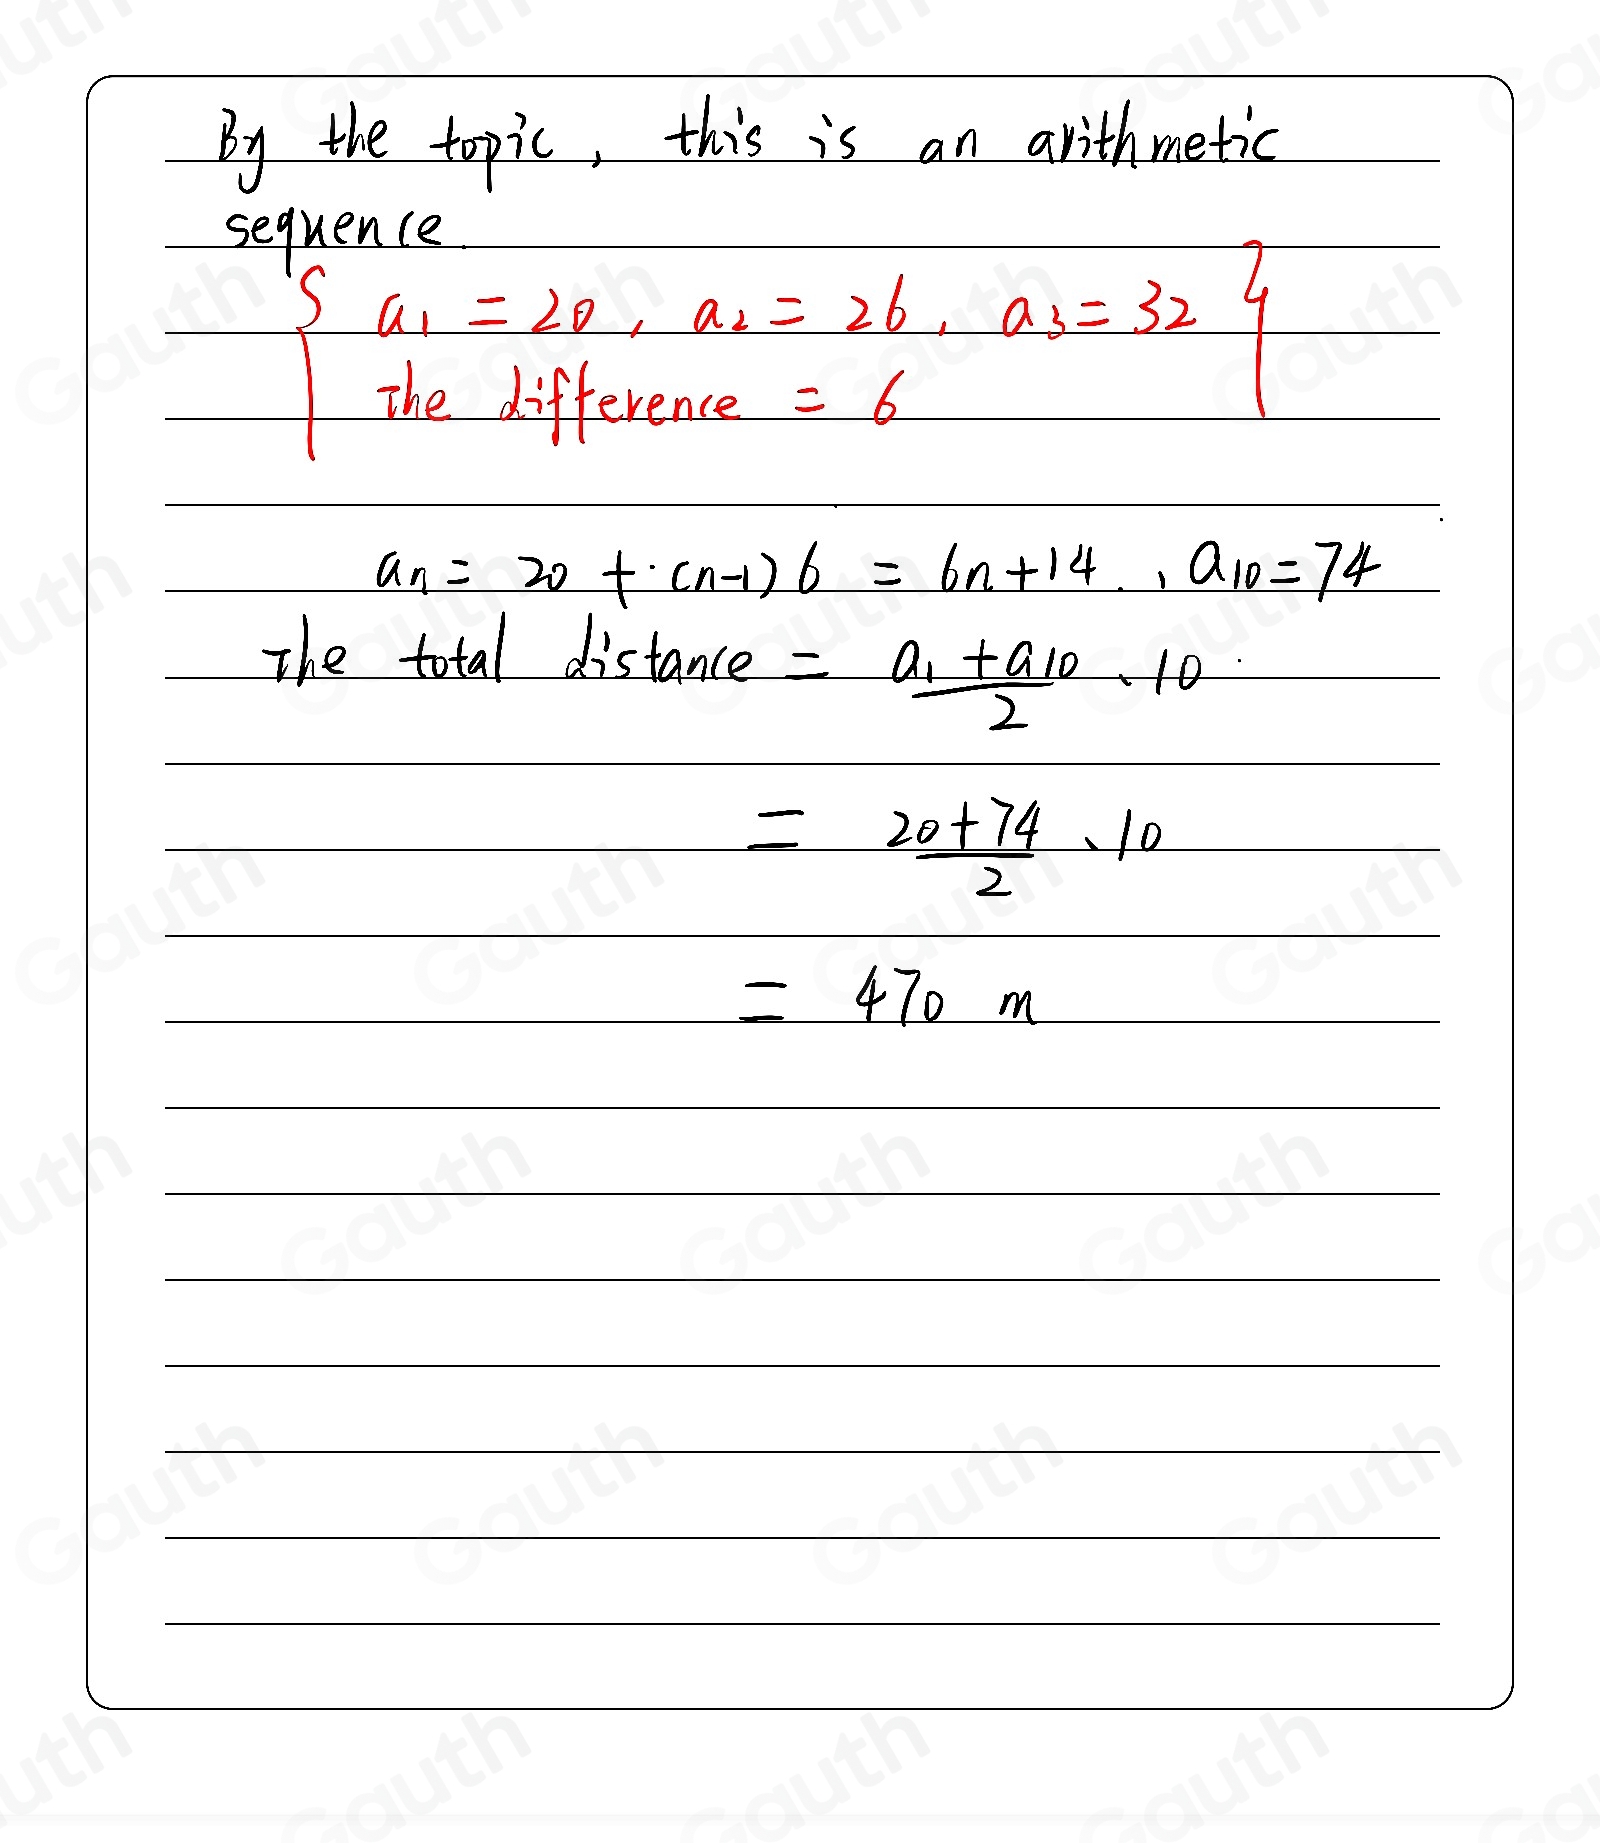 By the topic, this is an arithmetic
sequence.
{ a₁ = 20, a₂ = 26, a₃ = 32 }
The difference = 6
aₙ = 20 + (n-1)6 = 6n+14, a₁₀ = 74
The total distance = (a₁ + a₁₀)/2 · 10
= (20+74)/2 · 10
= 470 m
Gauth